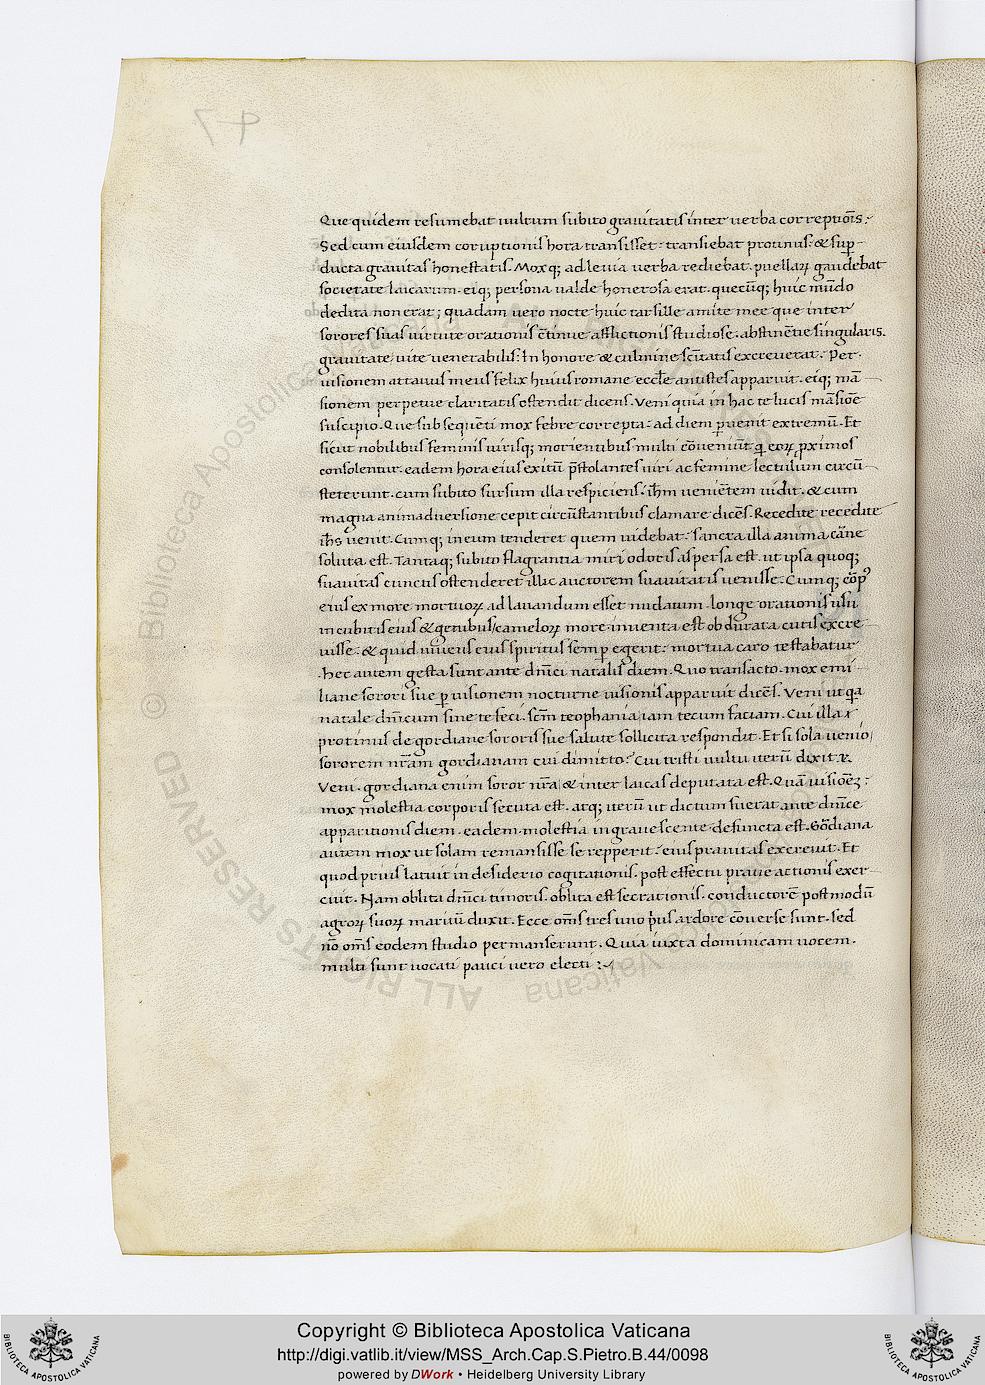 47
Que quidem resumebat uultum subito grauitatis inter uerba correptiōis :
Sed cum eiusdem coruptionis hora transisset : transiebat protinus . & suꝑ-
ducta grauitas honestatis . Moxqȝ ad leuia uerba rediebat . puellaꝝ gaudebat
societate laicarum . eiqȝ persona ualde honerosa erat . quecūqȝ huic mūdo
dedita non erat ; quadam uero nocte huic tarsille amite mee que inter
sorores suas uirtute orationis c̄tinue afflictionis studiose . abstinēue singularis .
grauitate uite uenerabilis . In honore & culmine sc̄itatis excreuerat . Per .
uisionem attauus meus felix huius romane eccl̄e antistes apparuit . eiqȝ mā-
sionem perpetue claritatis ostendit dicens . Veni quia in hac te lucis māsiōe
suscipio . Que subsequēti mox febre correpta : ad diem ꝑuenit extremū . Et
sicut nobilibus feminis uirisqȝ morientibus multi cōueniūt q̄ eoꝝ ꝓximos
consolentur . eadem hora eius exitū p̄stolantes uiri ac femine lectulum circū-
steterunt . cum subito sursum illa respiciens . ih̄m ueniētem uidit . & cum
magna animaduersione cepit circūstantibus clamare dicēs . Recedite recedite
ih̄s uenit . Cumqȝ in eum tenderet quem uidebat : sancta illa anima cāne
soluta est . Tantaqȝ subito flagrantia miri odoris aspersa est . ut ipsa quoqȝ
suauitas cunctis ostenderet illic auctorem suauitatis uenisse . Cumqȝ cōpꝰ
eius ex more mortuoꝝ ad lauandum esset nudatum . longe orationis usu
in cubitis eius & genibus / cameloꝝ more . inuenta est obdurata cutis excre-
uisse . & quid uiuens eius spiritus semꝑ egerit : mortua caro testabatur
. hec autem gesta sunt ante dn̄ici natalis diem . Quo transacto . mox emi-
liane sorori sue ꝑ uisionem nocturne uisionis apparuit dicēs . Veni ut qa
natale dn̄icum sine te feci . sc̄m teophania iam tecum faciam . Cui illa
protinus de gordiane sororis sue salute sollicita respondit . Et si sola uenio /
sororem nr̄am gordianam cui dimitto ? Cui tristi uultu iterū dixit .
Veni . gordiana enim soror nr̄a / & inter laicas deputata est . Quā uisiōeȝ :
mox molestia corporis secuta est . atqȝ iterū ut dictum fuerat ante dn̄ice
apparitionis diem . eadem molestia ingrauescente defuncta est . Gōdiana
autem mox ut solam remansisse se repperit : eius prauitas excreuit . Et
quod prius latuit in desiderio cogitationis . post effectū praue actionis exer-
cuit . Nam oblita dn̄ici timoris . oblita est secrationis . conductorē postmodū
agroꝝ suoꝝ maritū duxit . Ecce om̄s tres uno p̄us ardore cōuerse sunt . sed
nō om̄s eodem studio permanserunt . Quia iuxta dominicam uocem .
multi sunt uocati pauci uero electi :
© Biblioteca Apostolica Vaticana
ALL RIGHTS RESERVED
Copyright © Biblioteca Apostolica Vaticana
http://digi.vatlib.it/view/MSS_Arch.Cap.S.Pietro.B.44/0098
powered by DWork • Heidelberg University Library
BIBLIOTECA APOSTOLICA VATICANA
BIBLIOTECA APOSTOLICA VATICANA